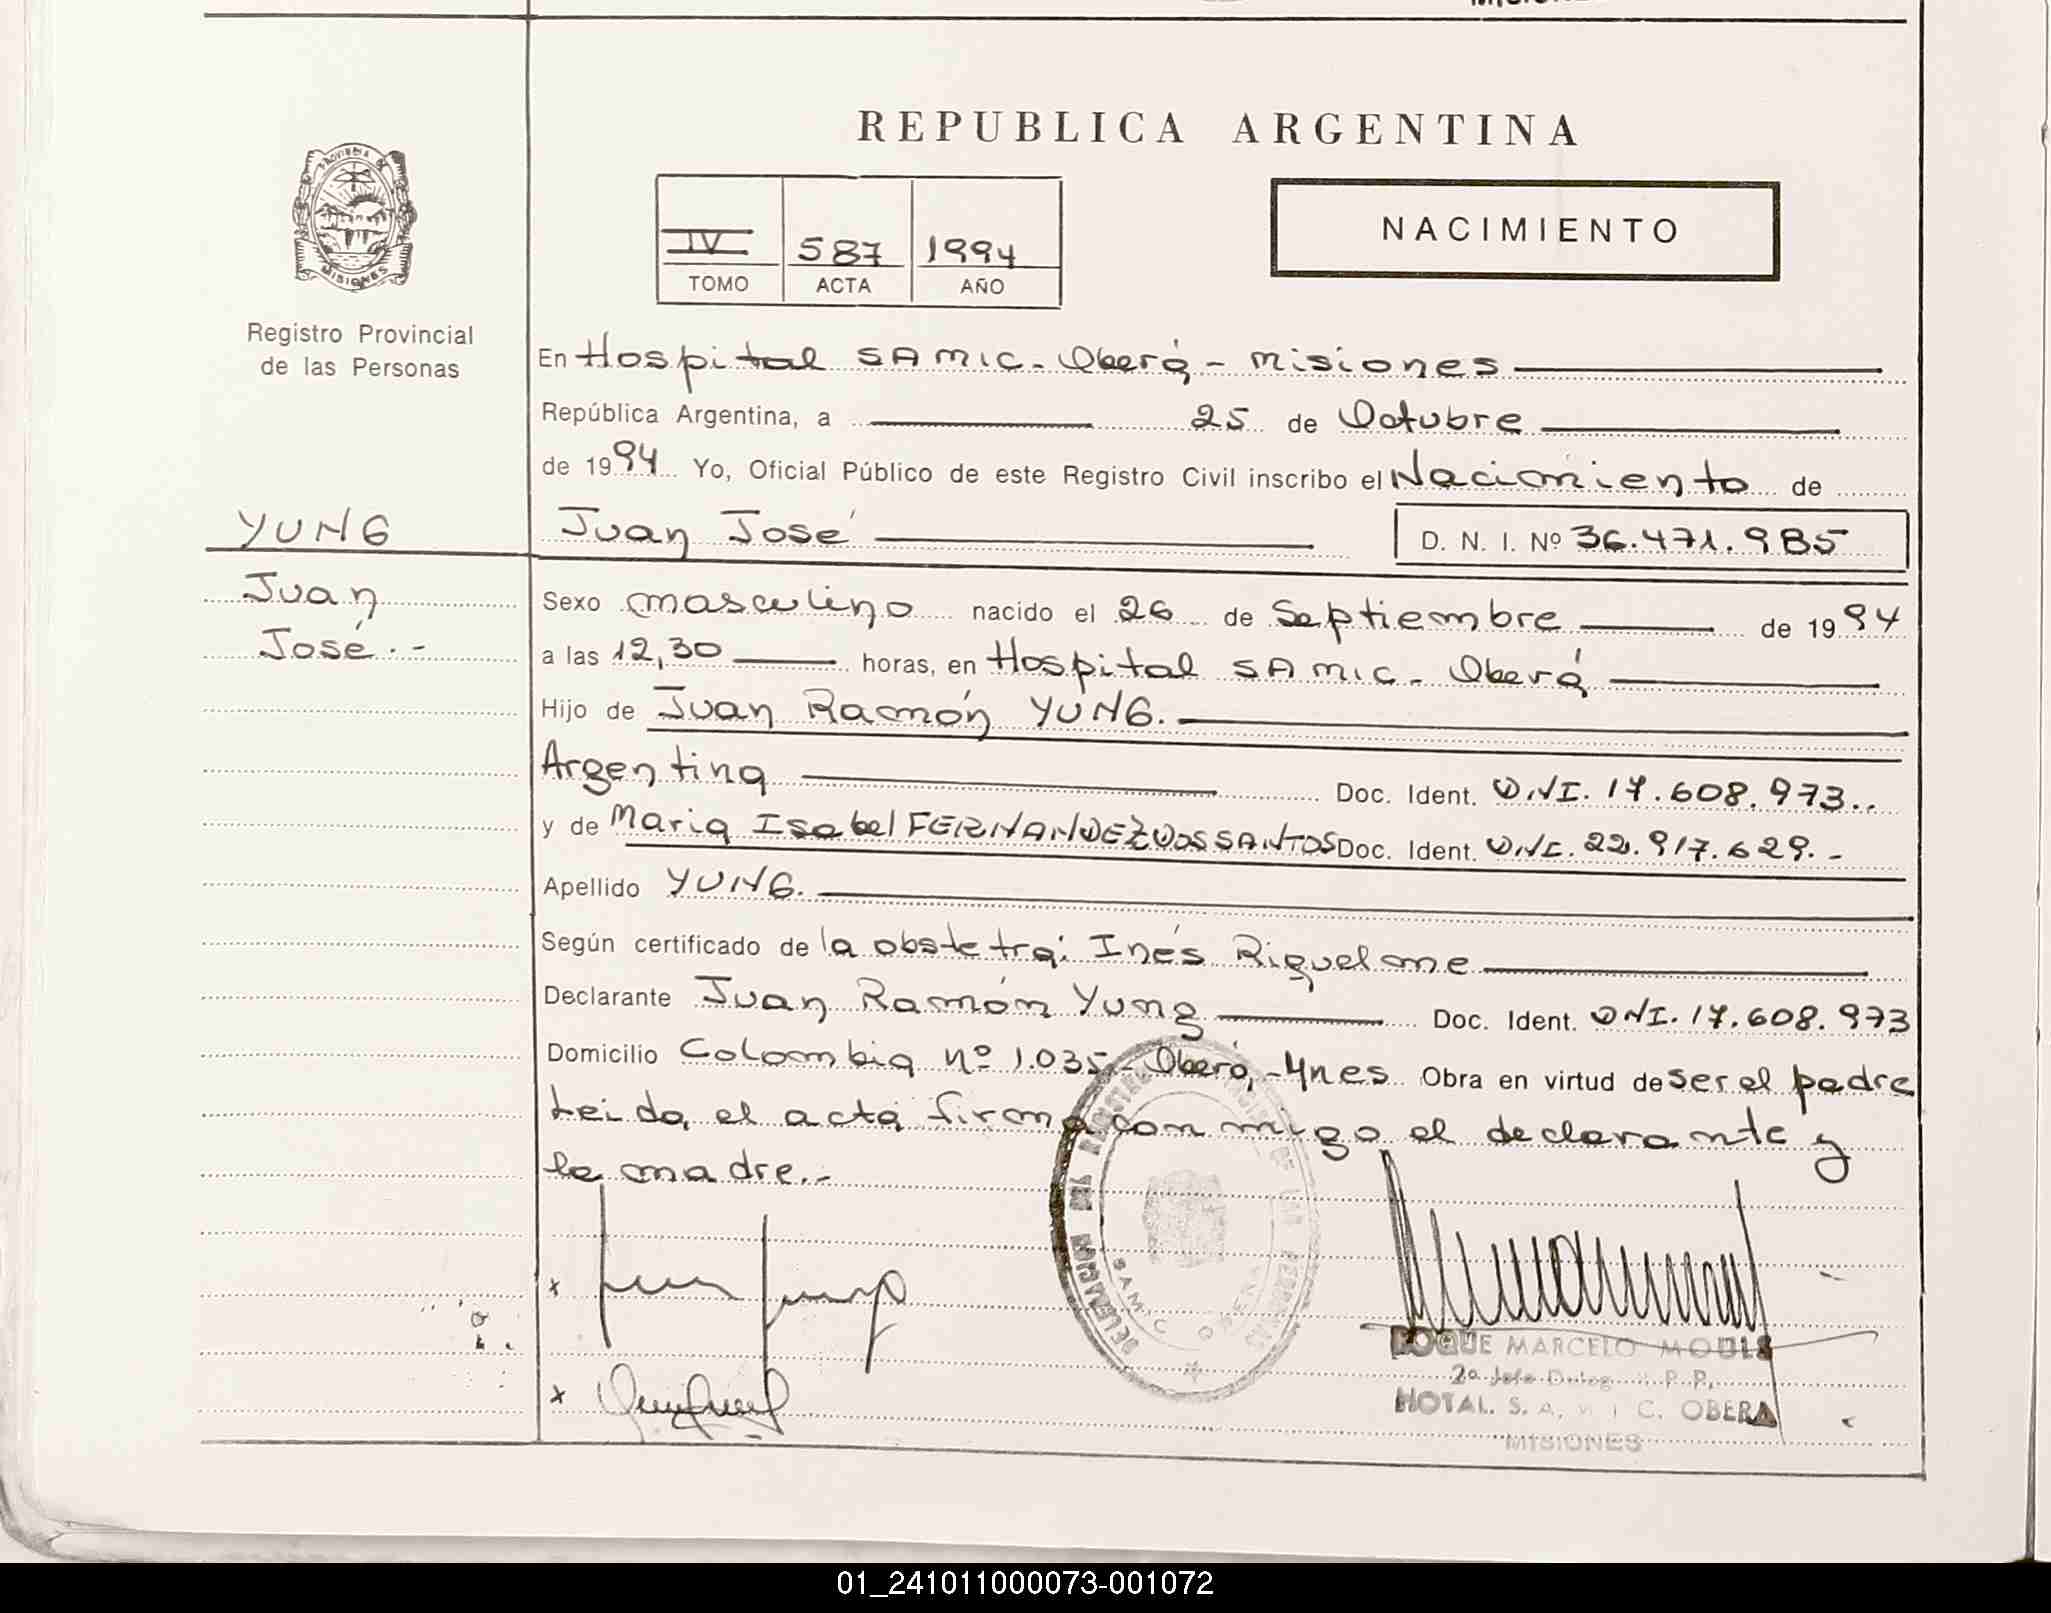 REPUBLICA ARGENTINA
PROVINCIA DE
MISIONES
IV 587 1994
TOMO ACTA AÑO
NACIMIENTO
Registro Provincial
de las Personas
En Hospital SAMIC - Oberá - Misiones
República Argentina, a 25 de Octubre
de 1994 Yo, Oficial Público de este Registro Civil inscribo el Nacimiento de
YUNG
Juan José D. N. I. Nº 36.471.985
Juan
José.-
Sexo masculino nacido el 26 de Septiembre de 1994
a las 12,30 horas, en Hospital SAMIC - Oberá
Hijo de Juan Ramón YUNG.
Argentina Doc. Ident. DNI. 17.608.973..
y de Maria Isabel FERNANDEZ DOS SANTOS Doc. Ident. DNI. 22.917.629.-
Apellido YUNG.
Según certificado de la obstetra: Inés Riquelme
Declarante Juan Ramón Yung Doc. Ident. DNI. 17.608.973
Domicilio Colombia nº 1.035 - Oberá, - Mnes Obra en virtud de ser el padre
Leida, el acta firma con migo el declarante y
la madre.-
x
x
SAMIC OBERA
ROQUE MARCELO MODIS
2º Jefe Deleg. R. P. P.
HOTAL. S. A. M. I C. OBERA
MISIONES
01_241011000073-001072